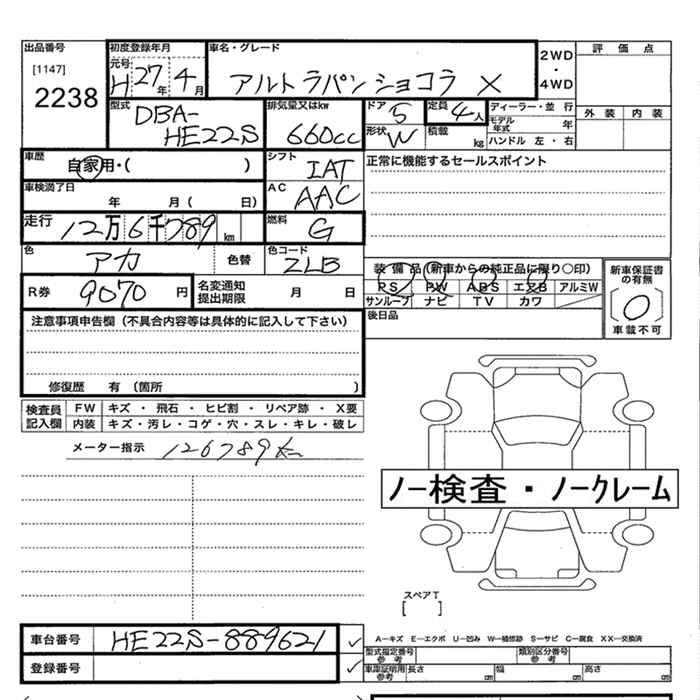 出品番号
[1147]
2238
初度登録年月
元号
H27年4月
車名・グレード
アルトラパンショコラ X
2WD
・
4WD
評価点
外装 内装
型式
DBA-
HE22S
排気量又はkw
660cc
ドア
5
形状
W
定員
4人
積載
kg
ディーラー・並行
モデル年式 年
ハンドル 左・右
車歴
自家用・( )
シフト
IAT
正常に機能するセールスポイント
車検満了日
年 月( 日)
AC
AAC
走行
12万6千789km
燃料
G
色
アカ
色替
色コード
ZLB
装備品(新車からの純正品に限り○印)
PS PW ABS エアB アルミW
サンルーフ ナビ TV カワ
新車保証書の有無
〔○〕
車載不可
R券
9070円
名変通知
提出期限
月 日
後日品
注意事項申告欄(不具合内容等は具体的に記入して下さい)
修復歴 有(箇所 )
検査員
記入欄
FW キズ・飛石・ヒビ割・リペア跡・X要
内装 キズ・汚レ・コゲ・穴・スレ・キレ・破レ
メーター指示 126789km
ノー検査・ノークレーム
スペアT
[ ]
車台番号
HE22S-889621 ✓
登録番号
✓
A-キズ E-エクボ U-凹み W-補修跡 S-サビ C-腐食 XX-交換済
型式指定番号
参考
類別区分番号
参考
車庫証明用
参考
長さ cm 幅 cm 高さ cm